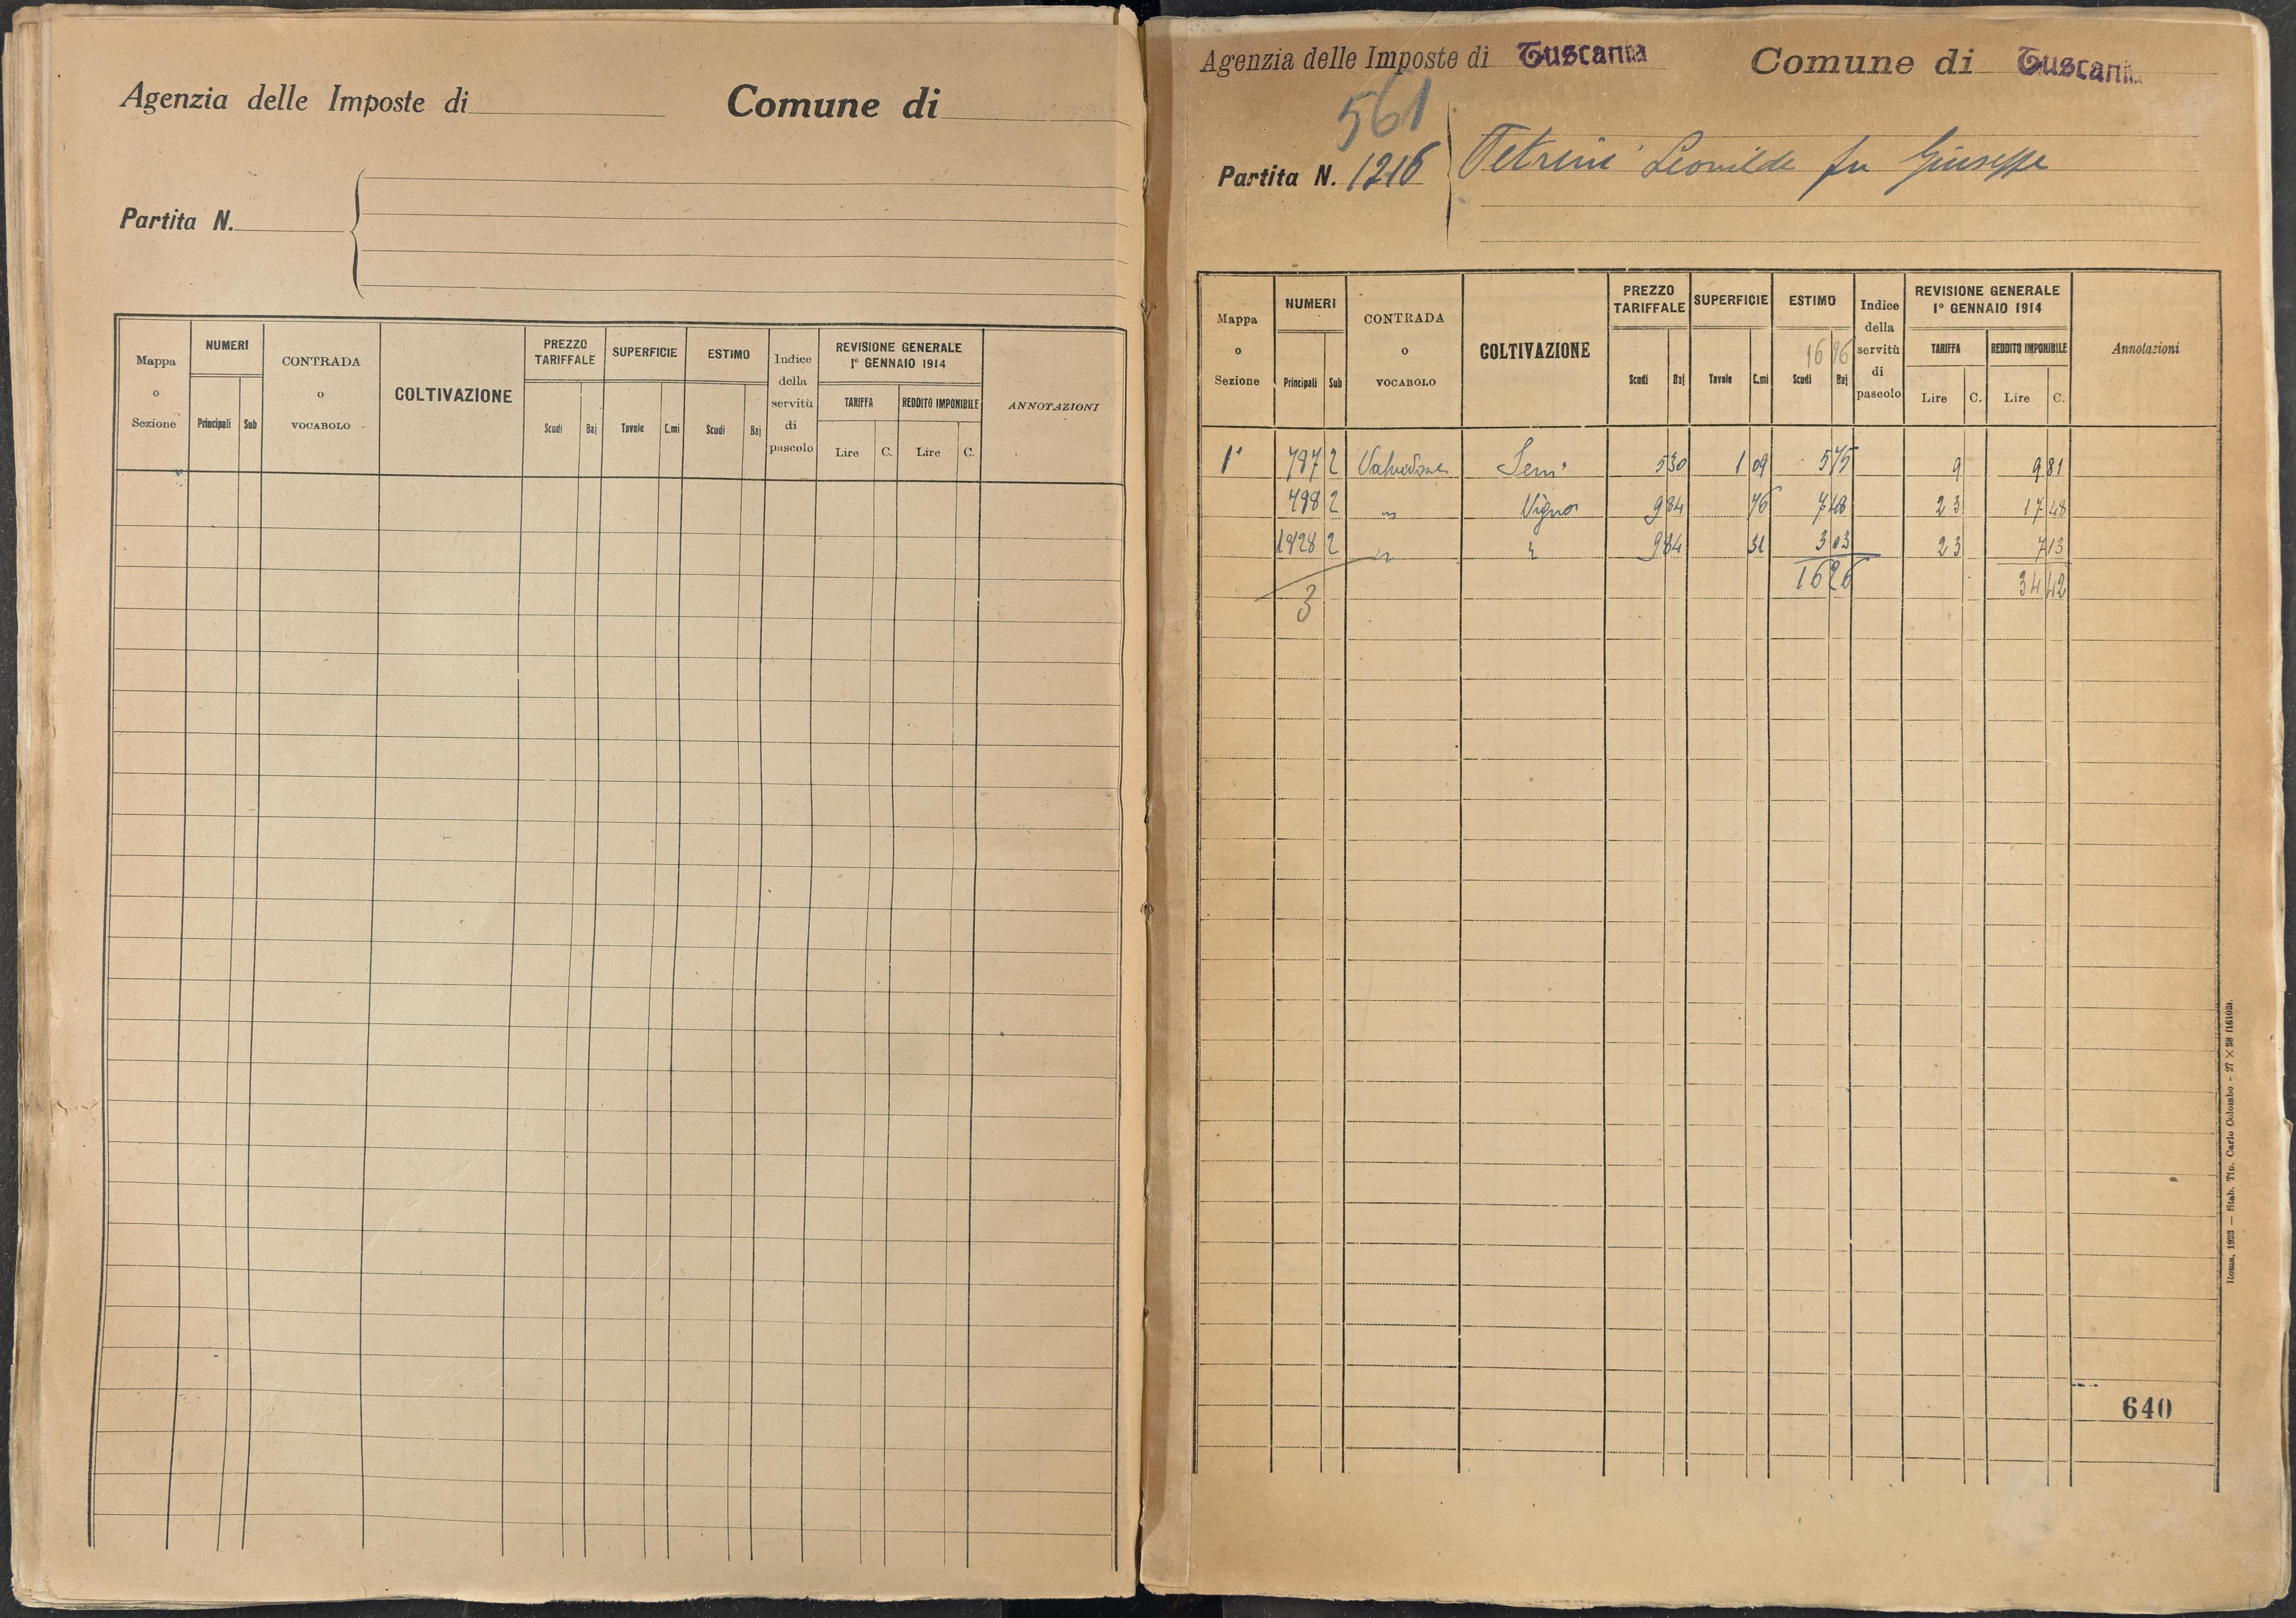 Agenzia delle Imposte di
Comune di
Partita N.
Mappa o Sezione
NUMERI
Principali
Sub
CONTRADA o VOCABOLO
COLTIVAZIONE
PREZZO TARIFFALE
Scudi
Baj
SUPERFICIE
Tavole
C.mi
ESTIMO
Scudi
Baj
Indice della servitù di pascolo
REVISIONE GENERALE
1º GENNAIO 1914
TARIFFA
Lire
C.
REDDITO IMPONIBILE
Lire
C.
ANNOTAZIONI
Agenzia delle Imposte di Tuscania
Comune di Tuscania
561
Partita N. 1216 Petrini Leonilde fu Giuseppe
Mappa o Sezione
NUMERI
Principali
Sub
CONTRADA o VOCABOLO
COLTIVAZIONE
PREZZO TARIFFALE
Scudi
Baj
SUPERFICIE
Tavole
C.mi
ESTIMO
16
Scudi
Baj
Indice della servitù di pascolo
REVISIONE GENERALE
1º GENNAIO 1914
TARIFFA
Lire
C.
REDDITO IMPONIBILE
Lire
C.
Annotazioni
1ª 797 2 Semi 5 30 1 09 5 75 9 9 81
798 2 " Vigna 9 84 76 7 48 23 17 48
2 " " 9 84 31 3 03 23 7 13
3 16 26 34 42
Roma, 1923 — Stab. Tip. Carlo Colombo - 27 × 38
640